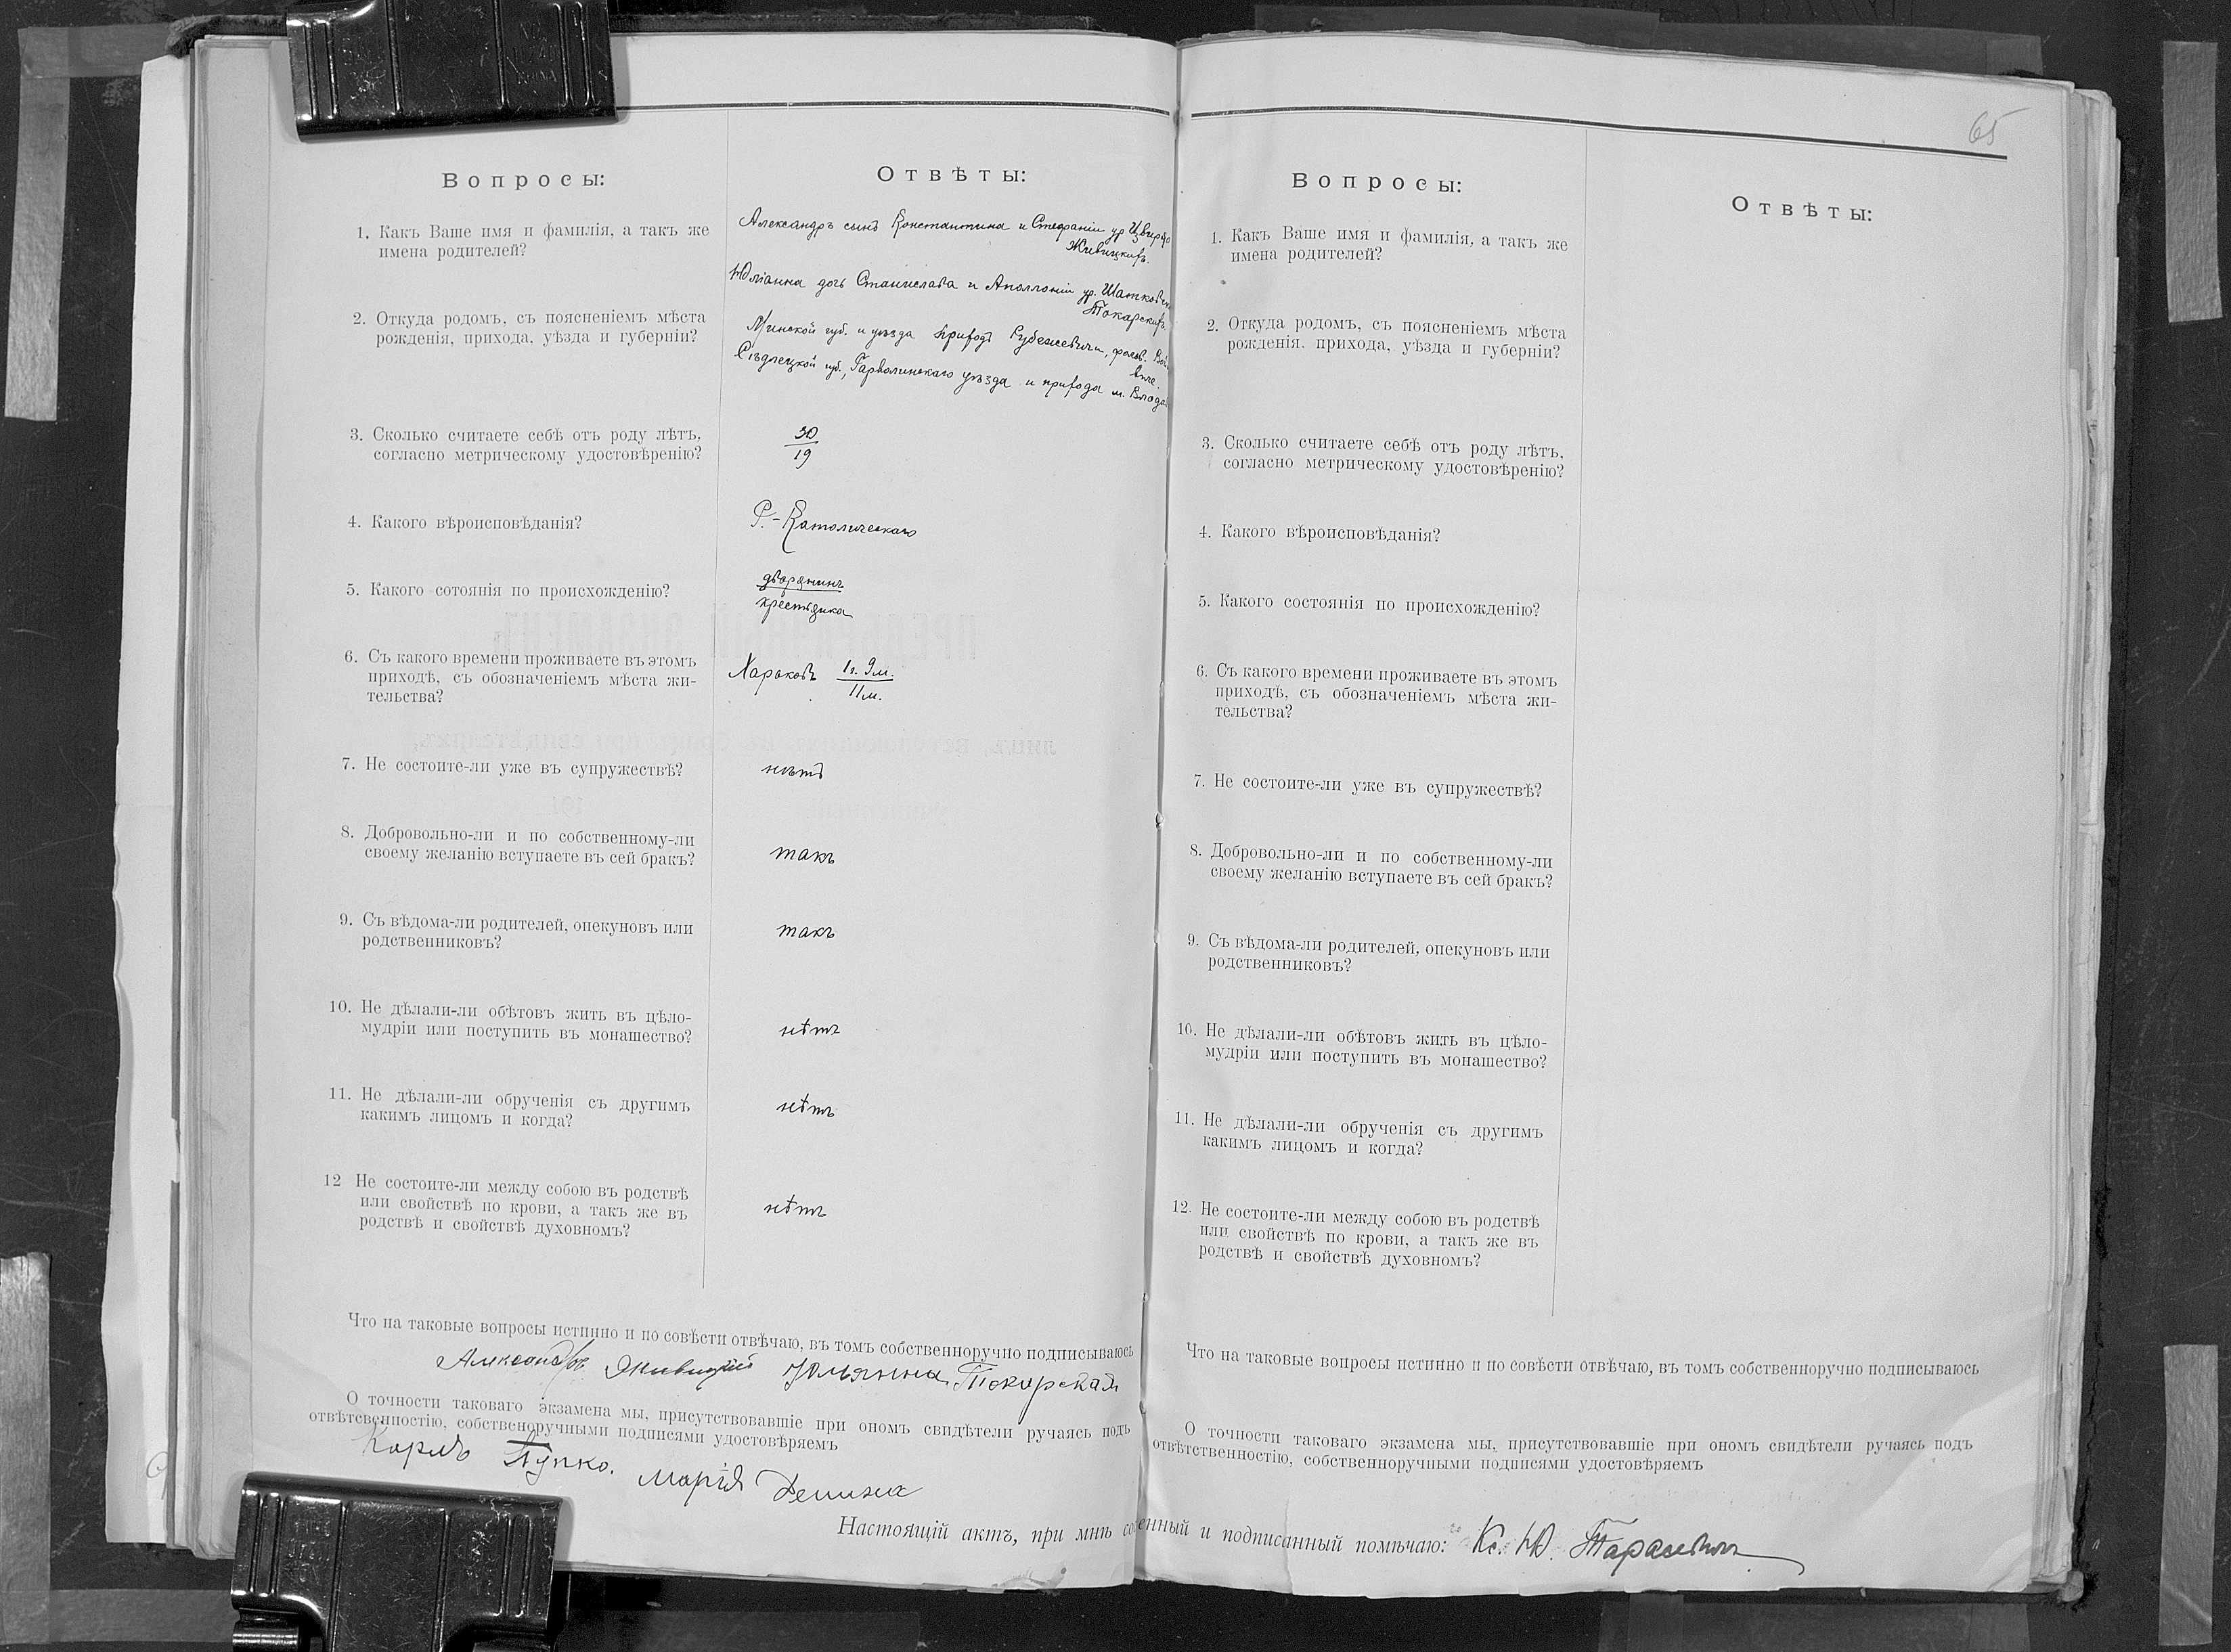 65
Вопросы:
Отвѣты:
1. Какъ Ваше имя и фамилія, а такъ же
имена родителей?
Александръ сынъ Константина и Стефаніи ур.
Живицкихъ.
Юліанна дочь Станислава и Аполлоніи ур.
Токарскихъ.
2. Откуда родомъ, съ поясненіемъ мѣста
рожденія, прихода, уѣзда и губерніи?
Минской губ. и уѣзда прихода Рубежевичи,
Сѣдлецкой губ., Гарволинскаго уѣзда и прихода м.
3. Сколько считаете себѣ отъ роду лѣтъ,
согласно метрическому удостовѣренію?
30
19
4. Какого вѣроисповѣданія?
Р.-Католическаго
5. Какого сотоянія по происхожденію?
дворянинъ
крестьянка
6. Съ какого времени проживаете въ этомъ
приходѣ, съ обозначеніемъ мѣста жи-
тельства?
Харьковъ 1г. 9м.
11м.
7. Не состоите-ли уже въ супружествѣ?
нѣтъ
8. Добровольно-ли и по собственному-ли
своему желанію вступаете въ сей бракъ?
такъ
9. Съ вѣдома-ли родителей, опекуновъ или
родственниковъ?
такъ
10. Не дѣлали-ли обѣтовъ жить въ цѣло-
мудріи или поступить въ монашество?
нѣтъ
11. Не дѣлали-ли обрученія съ другимъ
какимъ лицомъ и когда?
нѣтъ
12 Не состоите-ли между собою въ родствѣ
или свойствѣ по крови, а такъ же въ
родствѣ и свойствѣ духовномъ?
нѣтъ
Что на таковые вопросы истинно и по совѣсти отвѣчаю, въ томъ собственноручно подписываюсь
Александръ Живицкій Юльянна Токарская
О точности таковаго экзамена мы, присутствовавшіе при ономъ свидѣтели ручаясь подъ
отвѣтсвенностію, собственоручными подписями удостовѣряемъ
Карлъ Пупко. Марія
Вопросы:
Отвѣты:
1. Какъ Ваше имя и фамилія, а такъ же
имена родителей?
2. Откуда родомъ, съ поясненіемъ мѣста
рожденія, прихода, уѣзда и губерніи?
3. Сколько считаете себѣ отъ роду лѣтъ,
согласно метрическому удостовѣренію?
4. Какого вѣроисповѣданія?
5. Какого состоянія по происхожденію?
6. Съ какого времени проживаете въ этомъ
приходѣ, съ обозначеніемъ мѣста жи-
тельства?
7. Не состоите-ли уже въ супружествѣ?
8. Добровольно-ли и по собственному-ли
своему желанію вступаете въ сей бракъ?
9. Съ вѣдома-ли родителей, опекуновъ или
родственниковъ?
10. Не дѣлали-ли обѣтовъ жить въ цѣло-
мудріи или поступить въ монашество?
11. Не дѣлали-ли обрученія съ другимъ
какимъ лицомъ и когда?
12. Не состоите-ли между собою въ родствѣ
или свойствѣ по крови, а такъ же въ
родствѣ и свойствѣ духовномъ?
Что на таковые вопросы истинно и по совѣсти отвѣчаю, въ томъ собственноручно подписываюсь
О точности таковаго экзамена мы, присутствовавшіе при ономъ свидѣтели ручаясь подъ
отвѣтственностію, собственноручными подписями удостовѣряемъ
Настоящій актъ, при мнѣ и подписанный помѣчаю: Кс. Ю. Тарасевичъ